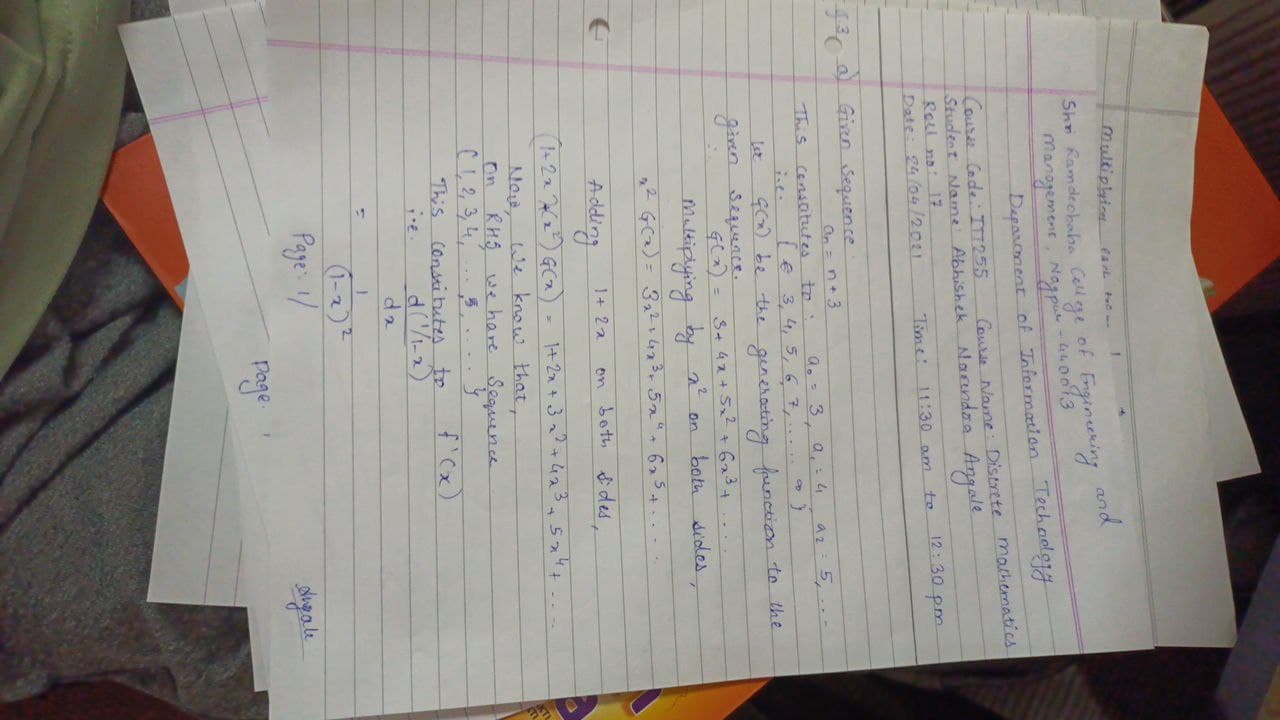 Shri Ramdeobaba College of Engineering and
Management, Nagpur - 440013
Department of Information Technology
Course Code: ITT255 Course Name: Discrete Mathematics
Student Name: Abhishek Narendra Angale
Roll no: 17
Date: 24/04/2021 Time: 11:30 am to 12:30 pm
Q.3 a) Given sequence
an = n+3
This constitutes to. a₀ = 3, a₁ = 4, a₂ = 5, ...
i.e. { 3, 4, 5, 6, 7, ....... ∞ }
let G(x) be the generating function to the
given sequence.
∴ G(x) = 3 + 4x + 5x² + 6x³ + .....
Multiplying by x² on both sides,
x² G(x) = 3x² + 4x³ + 5x⁴ + 6x⁵ + .....
Adding 1+2x on both sides,
(1+2x+x²) G(x) = 1+2x+3x²+4x³+5x⁴+ ....
Now, we know that,
on RHS we have sequence
{ 1, 2, 3, 4, ..., 5, ..... }
This constitutes to f'(x)
i.e. d(1/1-x)
dx
= 1
(1-x)²
Page: 1/
Angale
Page: